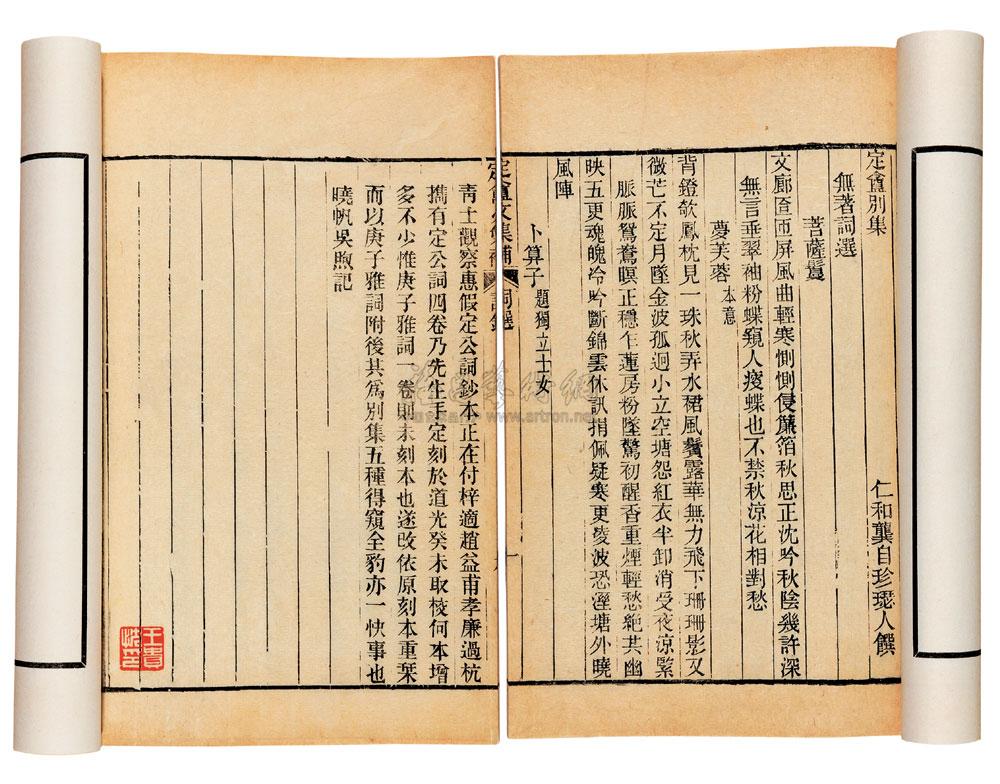 定盦別集
無著詞選
仁和龔自珍璱人饌
菩薩鬘
文廊匼匝屏風曲輕寒惻惻侵簾箔秋思正沈吟秋陰幾許深
無言垂翠袖粉蝶窺人瘦蝶也不禁秋涼花相對愁
夢芙蓉本意
背鐙欹鳳枕見一珠秋弄水裙風鬟露華無力飛下珊珊影又
微茫不定月墜金波孤迥小立空塘怨紅衣半卸消受夜涼緊
脈脈鴛鴦暝正穩乍蓮房粉墜驚初醒香重煙輕愁絶共幽
映五更魂魄冷吟斷錦雲休訊捐佩疑寒更凌波恐溼塘外曉
風陣
卜算子題獨立士女
定盦文集補
詞選
青士觀察惠假定公詞鈔本正在付梓適趙益甫孝廉過杭
攜有定公詞四卷乃先生手定刻於道光癸未取校何本增
多不少惟庚子雅詞一卷則未刻本也遂改依原刻本重栞
而以庚子雅詞附後其爲別集五種得窺全豹亦一快事也
曉帆吳煦記
www.artron.net